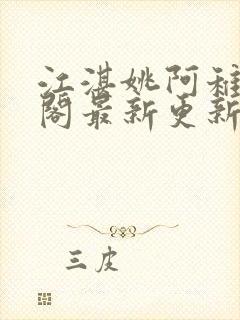 江湛姚阿稚
阁最新更新
三皮